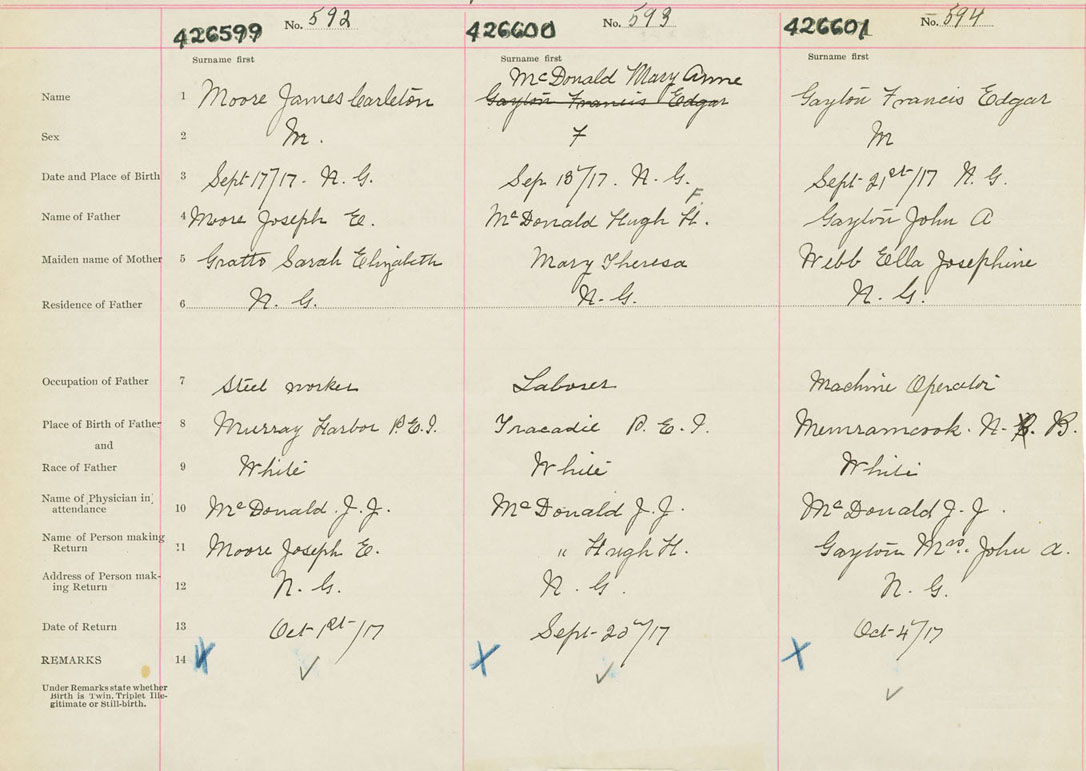 426599 No. 592 426600 No. 593 426601 No. 594
Surname first Surname first Surname first
McDonald Mary Anne
Name 1 Moore James Carleton Gayton Francis Edgar Gayton Francis Edgar
Sex 2 M. F M
Date and Place of Birth 3 Sept 17/17. N. G. Sep 18/17. N. G. Sept 21st/17 N. G.
F.
Name of Father 4 Moore Joseph E. McDonald Hugh H. Gayton John A
Maiden name of Mother 5 Gratto Sarah Elizabeth Mary Theresa Webb Ella Josephine
Residence of Father 6 N. G. N. G. N. G.
Occupation of Father 7 Steel worker Laborer Machine Operator
Place of Birth of Father 8 Murray Harbor P.E.I. Tracadie P.E.I. Memramcook. N. B.
and
Race of Father 9 White White White
Name of Physician in
attendance 10 McDonald J. J. McDonald J. J. McDonald J. J.
Name of Person making
Return 11 Moore Joseph E. " Hugh H. Gayton Mrs. John A.
Address of Person mak-
ing Return 12 N. G. N. G. N. G.
Date of Return 13 Oct 1st/17 Sept 20/17 Oct 4/17
REMARKS 14
Under Remarks state whether
Birth is Twin, Triplet Ille-
gitimate or Still-birth.